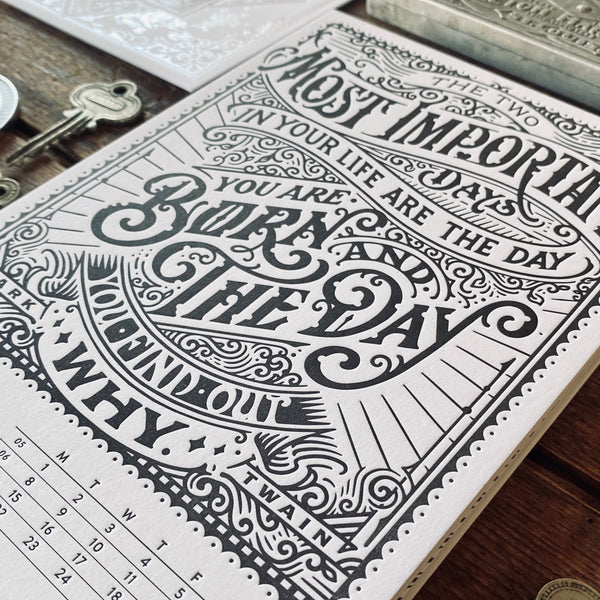 THE TWO
MOST IMPORTA
DAYS
IN YOUR LIFE ARE THE DAY
YOU ARE
BORN AND
THE DAY
YOU FIND OUT
WHY.
ARK
TWAIN
M T W T F
05 1 2 3 4 5
06 8 9 10 11
15 16 17 18
23 24